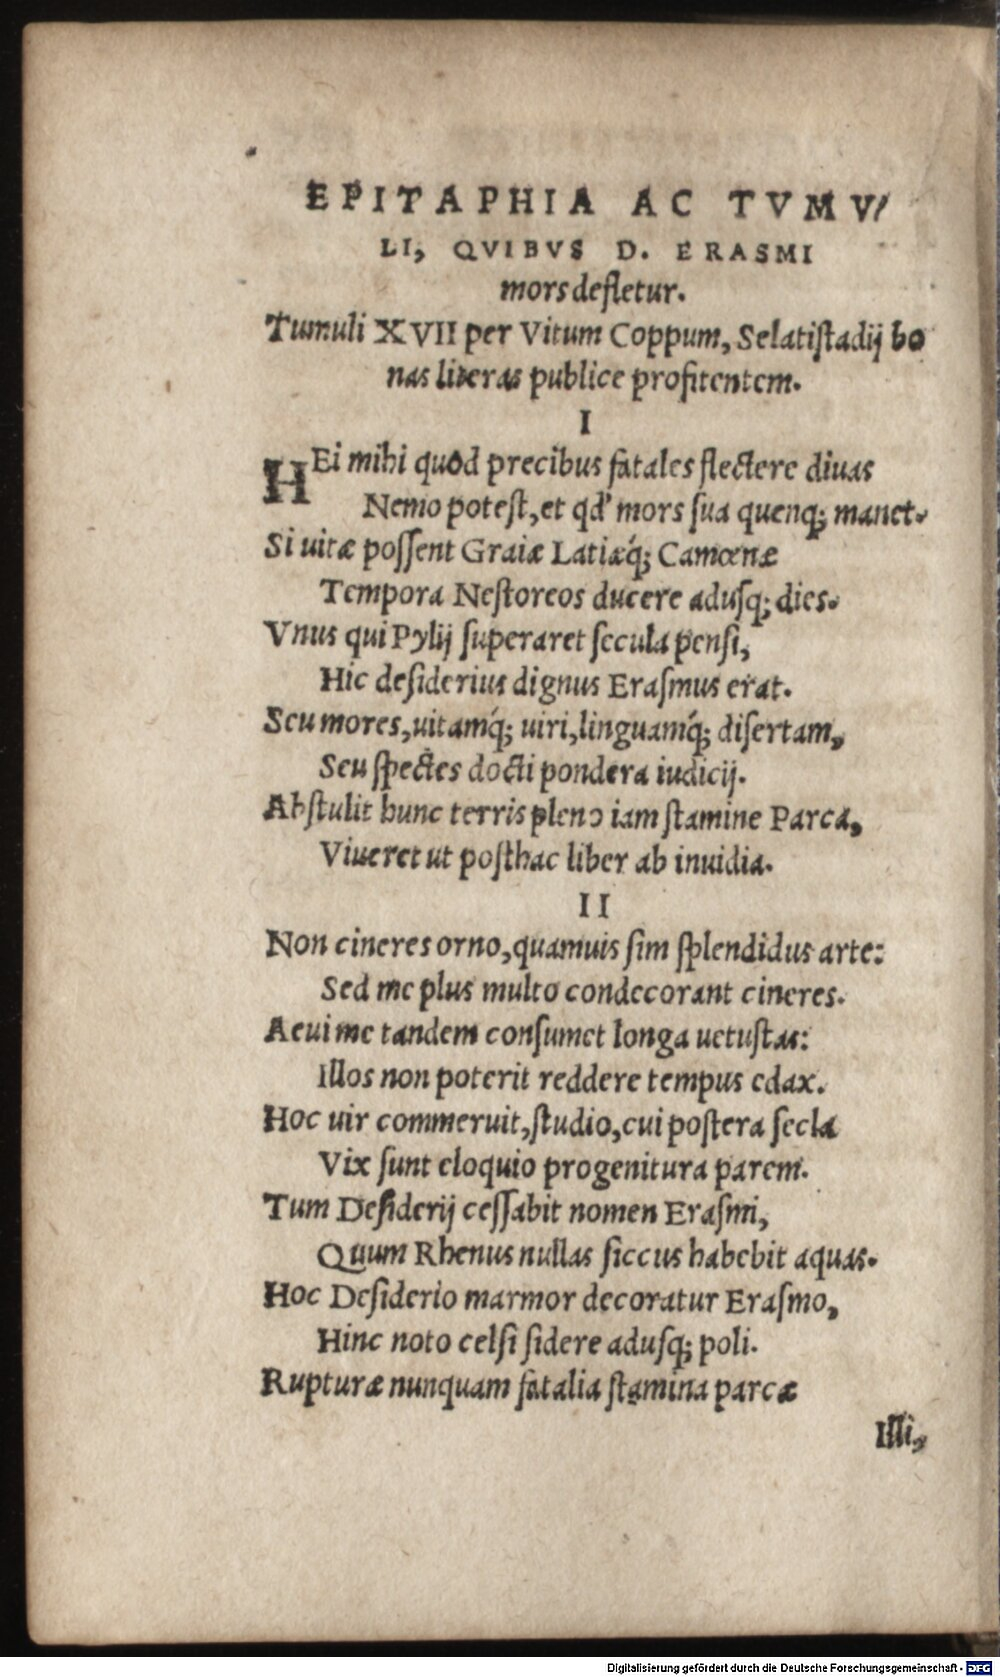 EPITAPHIA AC TVMV/
LI, QVIBVS D. ERASMI
mors defletur.
Tumuli XVII per Vitum Coppum, Selatiſtadij bo
nas literas publice profitentem.
I
HEi mihi quòd precibus fatales flectere diuas
Nemo poteſt, et qd' mors ſua quenq; manet.
Si uitæ poſſent Graiæ Latiæq́; Camœnæ
Tempora Neſtoreos ducere aduſq; dies.
Vnus qui Pylij ſuperaret ſecula penſi,
Hic deſiderius dignus Eraſmus erat.
Seu mores, uitamq́; uiri, linguamq́; diſertam,
Seu ſpectes docti pondera iudicij.
Abſtulit hunc terris pleno iam ſtamine Parca,
Viueret ut poſthac liber ab inuidia.
II
Non cineres orno, quamuis ſim ſplendidus arte:
Sed me plus multo condecorant cineres.
Aeui me tandem conſumet longa uetuſtas:
Illos non poterit reddere tempus edax.
Hoc uir commeruit, ſtudio, cui poſtera ſecla
Vix ſunt eloquio progenitura parem.
Tum Deſiderij ceſſabit nomen Eraſmi,
Quum Rhenus nullas ſiccus habebit aquas.
Hoc Deſiderio marmor decoratur Eraſmo,
Hinc noto celſi ſidere aduſq; poli.
Rupturæ nunquam fatalia ſtamina parcæ
Illi,
Digitalisierung gefördert durch die Deutsche Forschungsgemeinschaft - DFG